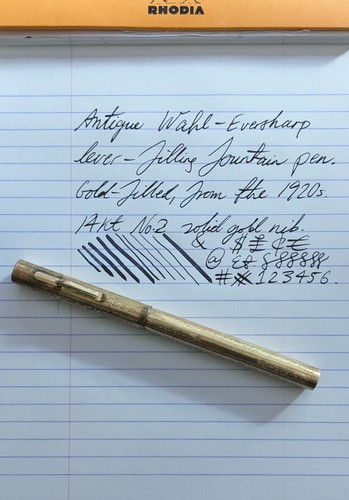 RHODIA
Antique Wahl-Eversharp
lever-filling fountain pen.
Gold-filled, from the 1920s.
14kt No.2 solid gold nib.
& $ £ ¢ €
@ &
# 123456.